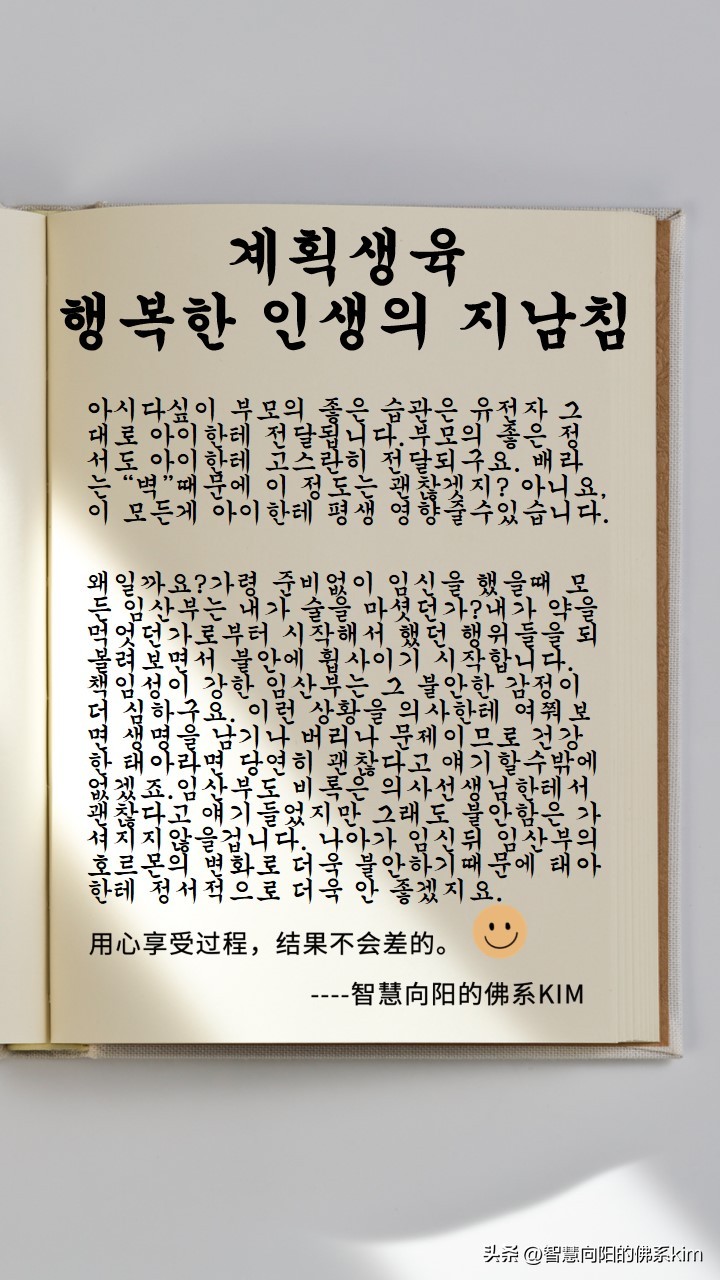 계획생육
행복한 인생의 지남침
아시다싶이 부모의 좋은 습관은 유전자 그
대로 아이한테 전달됩니다.부모의 좋은 정
서도 아이한테 고스란히 전달되구요. 배라
는 “벽”때문에 이 정도는 괜찮겟지? 아니요,
이 모든게 아이한테 평생 영향줄수있습니다.
왜일까요?가령 준비없이 임신을 했을때 모
든 임산부는 내가 술을 마셧던가?내가 약을
먹엇던가로부터 시작해서 했던 행위들을 되
돌려보면서 불안에 휩사이기 시작합니다.
책임성이 강한 임산부는 그 불안한 감정이
더 심하구요. 이런 상황을 의사한테 여쭤보
면 생명을 남기나 버리나 문제이므로 건강
한 태아라면 당연히 괜찮다고 얘기할수밖에
없겠죠.임산부도 비록은 의사선생님한테서
괜찮다고 얘기들었지만 그래도 불안함은 가
셔지지않을겁니다. 나아가 임신뒤 임산부의
호르몬의 변화로 더욱 불안하기때문에 태아
한테 정서적으로 더욱 안 좋겠지요.
用心享受过程，结果不会差的。
----智慧向阳的佛系KIM
头条 @智慧向阳的佛系kim